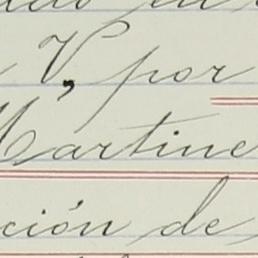 V, por
Martine
ción de